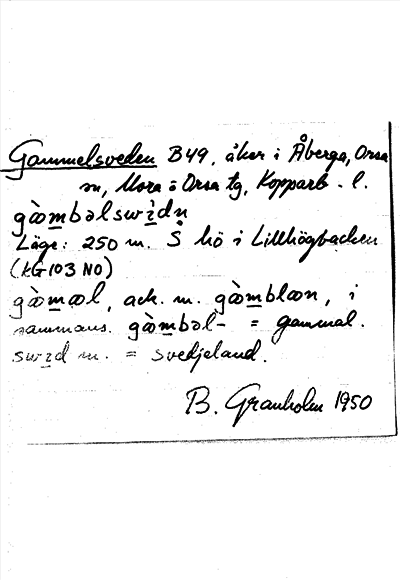 Gammelsveden B49, åker i Åberga, Orsa
m, Mora o Orsa tg, Kopparb. l.
gàmbəlswidn̥
Läge: 250 m. S hö i Lillhögbacken
(kG103 NO)
gàmæl, ack. m. gàmblæn, i
sammans. gàmbəl- = gammal.
swid m. = svedjeland.
B. Granholm 1950